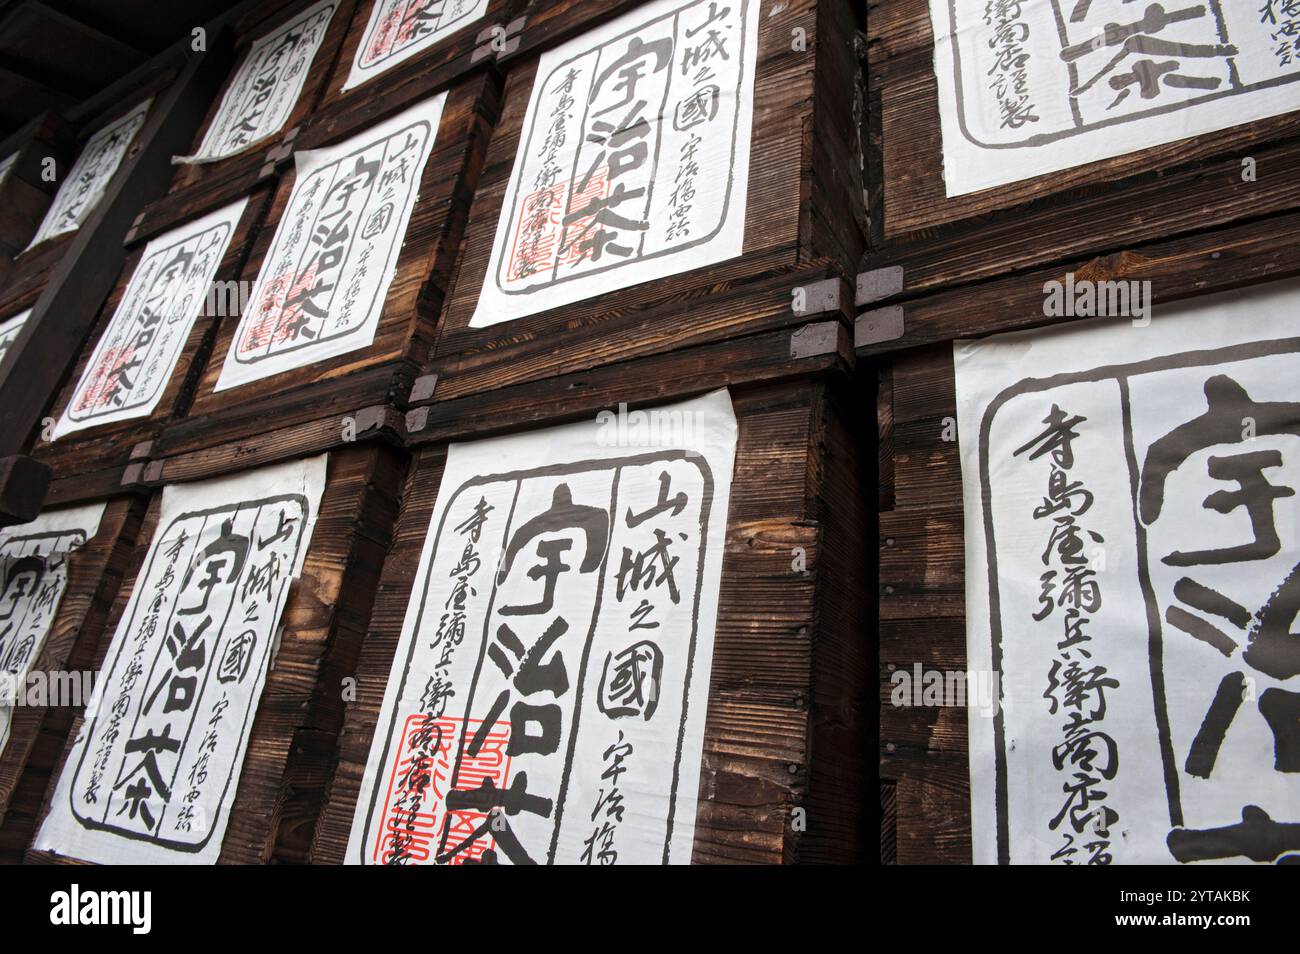 宇治茶
茶
宇治茶
山城之國
宇治茶
山城之國 宇治橋西詰
宇治茶
寺島屋彌兵衛商店謹製
山城之國 宇治橋西詰
宇治茶
寺島屋彌兵衛商店謹製
橋西詰
茶
衛商店謹製
宇治茶
山城之國 宇治橋西詰
宇治茶
寺島屋彌兵衛商店謹製
山城之國 宇治橋
宇治茶
寺島屋彌兵衛商店謹製
宇治
寺島屋彌兵衛商店謹
alamy
Image ID: 2YTAKBK
www.alamy.com